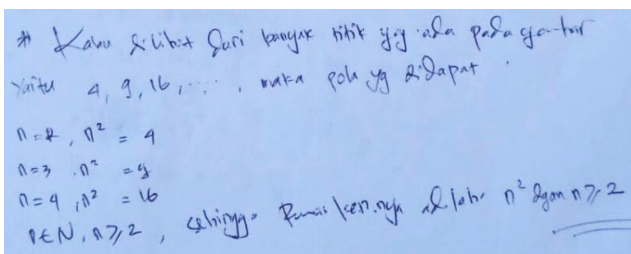 * Kalau dilihat dari banyak titik yg ada pada gambar
yaitu 4, 9, 16, ...., maka pola yg didapat.
n=2, n² = 4
n=3, n² = 9
n=4, n² = 16
n∈N, n≥2, sehingga Rumus nya adalah n² dgan n≥2